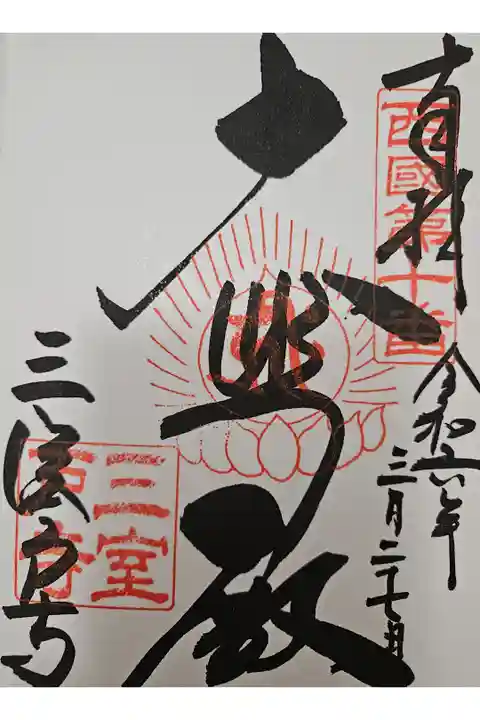 奉拝
西國第十番
令和六年
三月二十七日
大悲殿
三室戸寺
三室
戸寺